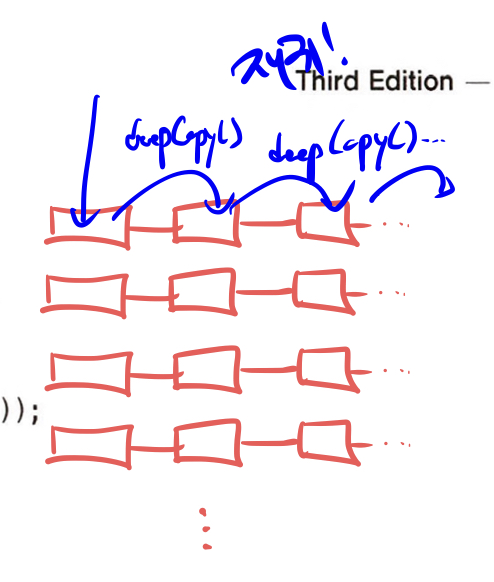 재귀!
Third Edition —
deepCopy() deepCopy() ...
));